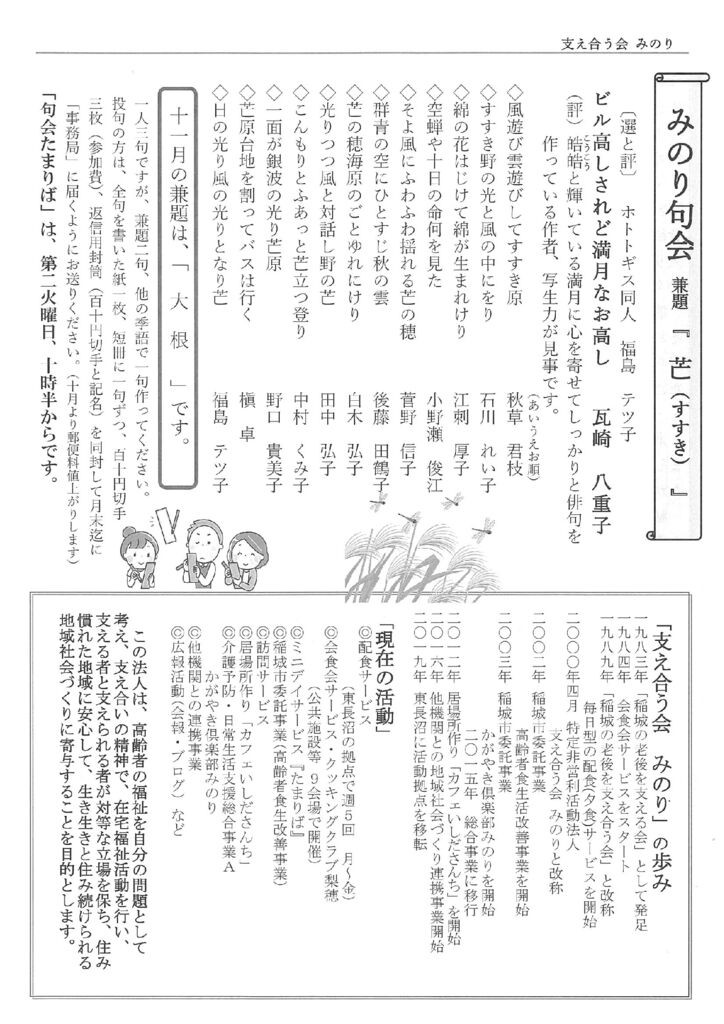 支え合う会 みのり
みのり句会 兼題 『 芒(すすき) 』
〔選と評〕 ホトトギス同人 福島 テツ子
ビル高しされど満月なお高し 瓦崎 八重子
(評) 皓皓と輝いている満月に心を寄せてしっかりと俳句を
こうこう
作っている作者、写生力が見事です。
(あいうえお順)
◇風遊び雲遊びしてすすき原 秋草 君枝
◇すすき野の光と風の中にをり 石川 れい子
◇綿の花はじけて綿が生まれけり 江刺 厚子
◇空蝉や十日の命何を見た 小野瀬 俊江
◇そよ風にふわふわ揺れる芒の穂 菅野 信子
◇群青の空にひとすじ秋の雲 後藤 田鶴子
◇芒の穂海原のごとゆれにけり 白木 弘子
◇光りつつ風と対話し野の芒 田中 弘子
◇こんもりとふあっと芒立つ登り 中村 くみ子
◇一面が銀波の光り芒原 野口 貴美子
◇芒原台地を割ってバスは行く 槇 卓
◇日の光り風の光りとなり芒 福島 テツ子
十一月の兼題は、「 大 根 」です。
一人三句ですが、兼題二句、他の季語で一句作ってください。
投句の方は、全句を書いた紙一枚、短冊に一句ずつ、百十円切手
三枚(参加費)、返信用封筒(百十円切手と記名)を同封して月末迄に
「事務局」に届くようにお送りください。(十月より郵便料値上がりします)
「句会たまりば」は、第二火曜日、十時半からです。
「支え合う会 みのり」の歩み
一九八三年「稲城の老後を支える会」として発足
一九八四年 会食会サービスをスタート
一九八九年「稲城の老後を支え合う会」と改称
毎日型の配食(夕食)サービスを開始
二〇〇〇年四月 特定非営利活動法人
支え合う会 みのりと改称
二〇〇二年 稲城市委託事業
高齢者食生活改善事業を開始
二〇〇三年 稲城市委託事業
かがやき倶楽部みのりを開始
二〇一五年 総合事業に移行
二〇一二年 居場所作り「カフェいしださんち」を開始
二〇一六年 他機関との地域社会づくり連携事業開始
二〇一九年 東長沼に活動拠点を移転
「現在の活動」
◎配食サービス
(東長沼の拠点で週5回 月〜金)
◎会食会サービス・クッキングクラブ梨穂
(公共施設等 9会場で開催)
◎ミニデイサービス『たまりば』
◎稲城市委託事業(高齢者食生改善事業)
◎訪問サービス
◎居場所作り「カフェいしださんち」
◎介護予防・日常生活支援総合事業A
かがやき倶楽部みのり
◎他機関との連携事業
◎広報活動(会報・ブログ) など
この法人は、高齢者の福祉を自分の問題として
考え、支え合いの精神で、在宅福祉活動を行い、
支える者と支えられる者が対等な立場を保ち、住み
慣れた地域に安心して、生き生きと住み続けられる
地域社会づくりに寄与することを目的とします。